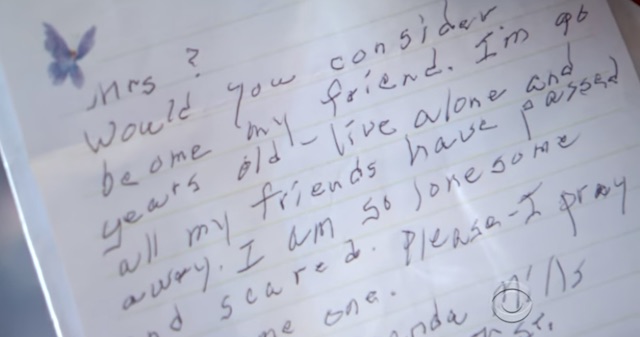 Mrs ?
Would you consider
be ome my friend. I'm 90
years old - live alone and
all my friends have passed
away. I am so lonesome
nd scared. Please - I pray
me one.
nda